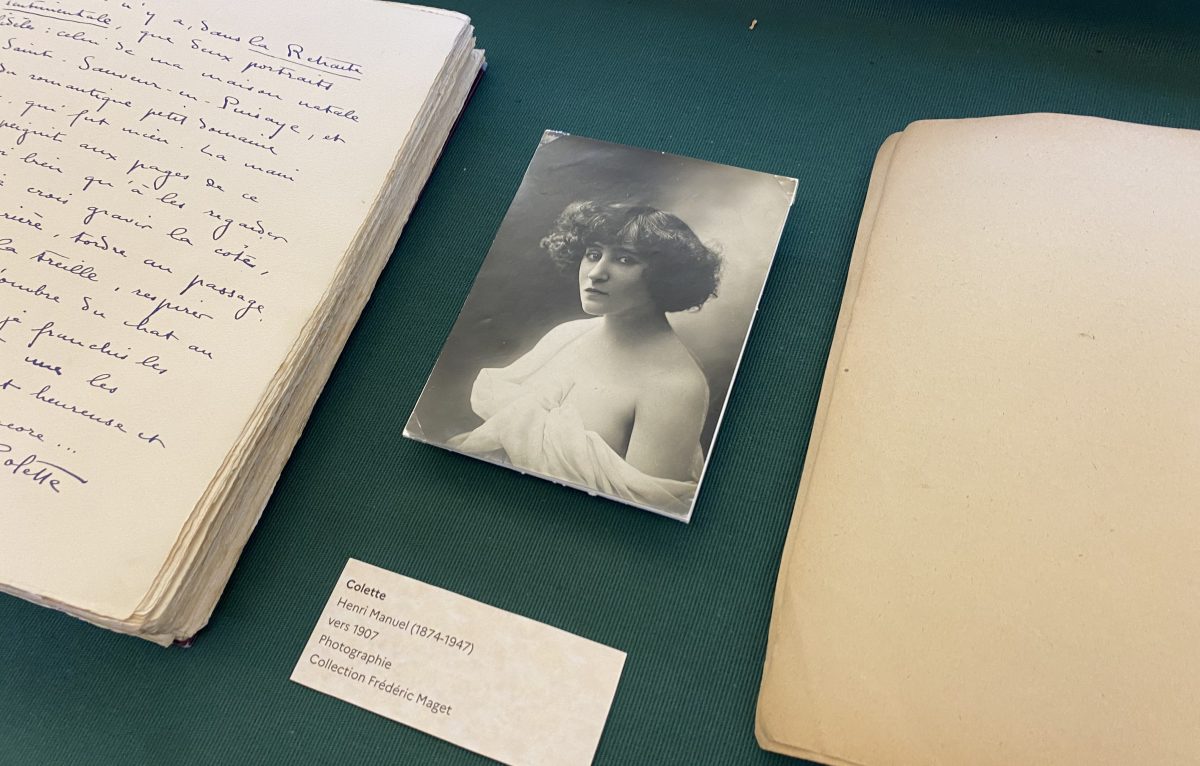 n'y a, dans la Retraite
sentimentale, que deux portraits
fidèles : celui de ma maison natale
Saint-Sauveur-en-Puisaye, et
du romantique petit domaine
qui fut mien. La main
peignit aux pages de ce
bien qu'à les regarder
crois gravir la côte,
tordre au passage
la treille, respirer
l'ombre du chat au
franchis les
les
heureuse et
encore...
Colette
Colette
Henri Manuel (1874-1947)
vers 1907
Photographie
Collection Frédéric Maget